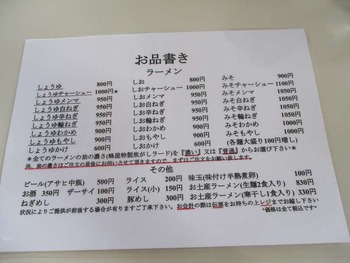 お品書き
ラーメン
しょうゆ 800円 しお 800円 みそ 900円
しょうゆチャーシュー 1000円* しおチャーシュー 1000円 みそチャーシュー 1100円
しょうゆメンマ 950円 しおメンマ 950円 みそメンマ 1050円
しょうゆ白ねぎ 950円 しお白ねぎ 950円 みそ白ねぎ 1050円
しょうゆ辛ねぎ 950円 しお辛ねぎ 950円 みそ辛ねぎ 1050円
しょうゆ輪ねぎ 950円 しお輪ねぎ 950円 みそ輪ねぎ 1050円
しょうゆわかめ 900円 しおわかめ 900円 みそわかめ 1000円
しょうゆもやし 900円 しおもやし 900円 みそもやし 1000円
しょうゆかけ 600円 しおかけ 600円 みそかけ 700円
*全てのラーメンの油の濃さは『濃い』又は『普通』からお選び下さい*
その他
ビール(アサヒ中瓶) 500円 ライス 200円 味玉(味付け半熟煮卵) 100円
お酒 350円 ザーサイ 100円 ライス(小) 150円 お土産ラーメン(生麺1食入り) 830円
ねぎめし 300円 豚めし 300円 お土産ラーメン(寒干し1食入り) 330円
状況によりご提供が前後する場合が有りますご了承下さい。お会計の際は伝票をお持ちの上レジまでお越し下さい
*価格は全て税込です*